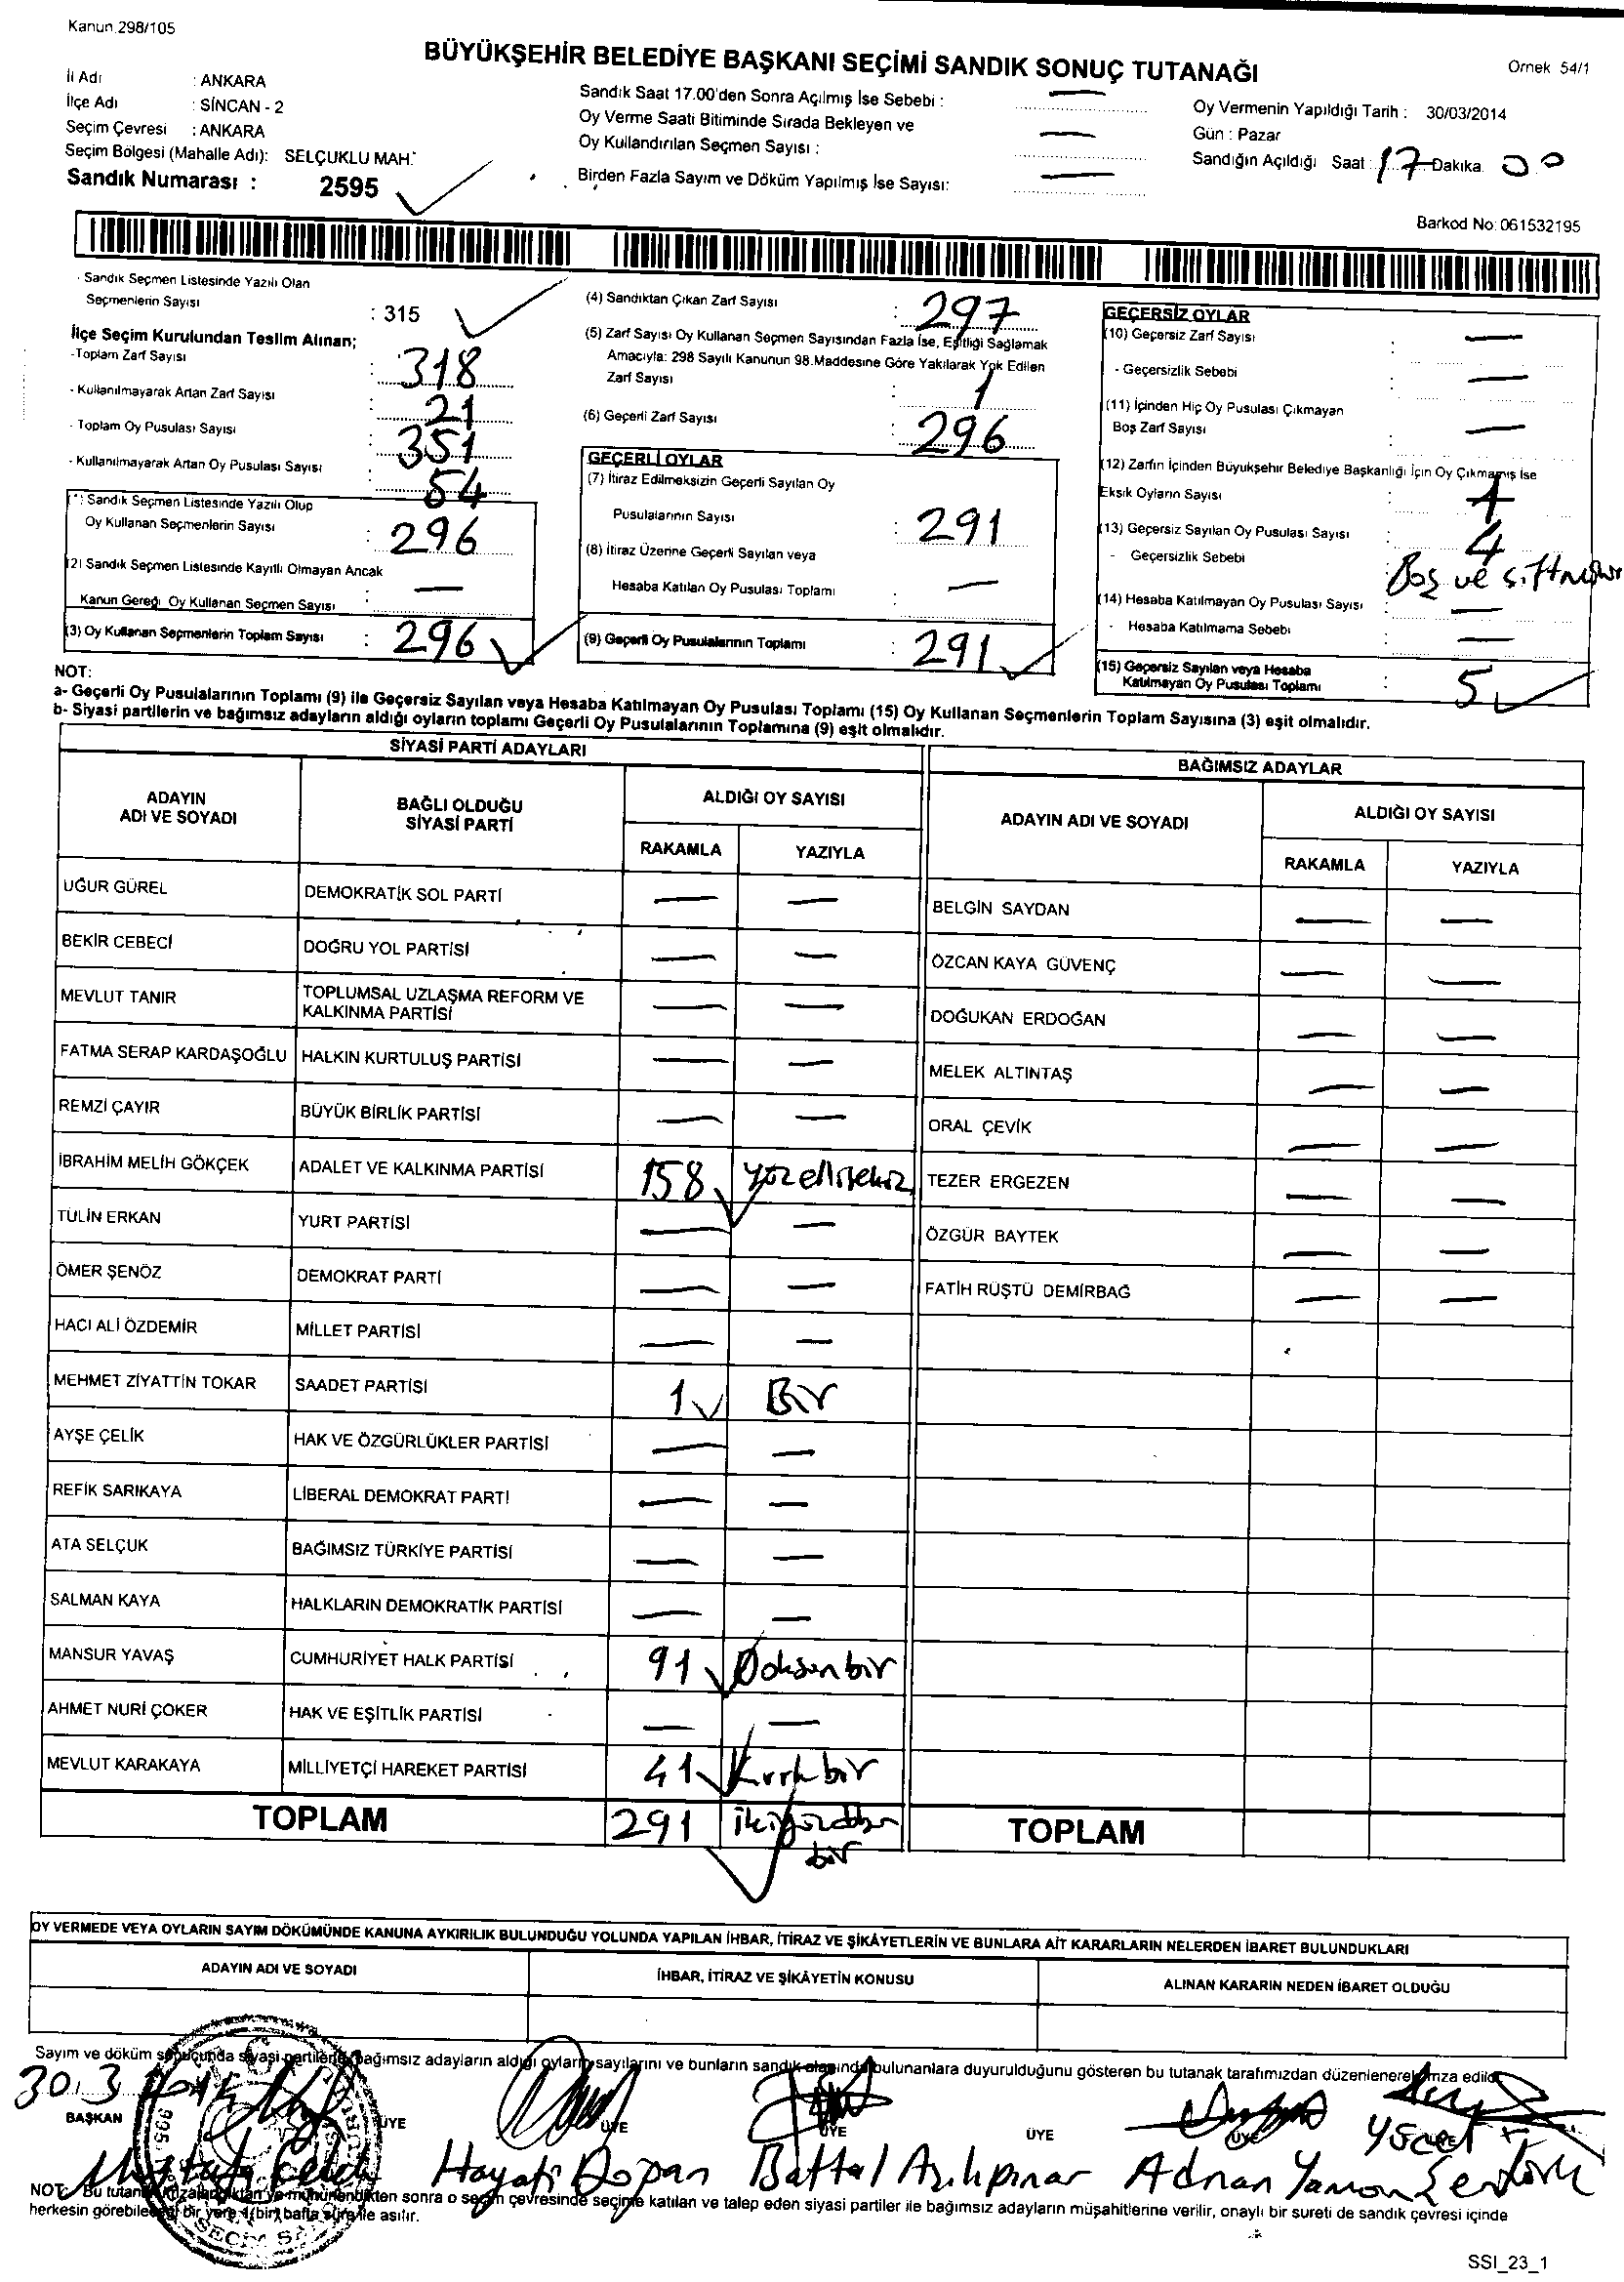 Kanun 298/105
BÜYÜKŞEHİR BELEDİYE BAŞKANI SEÇİMİ SANDIK SONUÇ TUTANAĞI
Örnek 54/1
İl Adı : ANKARA
İlçe Adı : SİNCAN - 2
Seçim Çevresi : ANKARA
Seçim Bölgesi (Mahalle Adı): SELÇUKLU MAH.
Sandık Numarası : 2595
Sandık Saat 17.00'den Sonra Açılmış İse Sebebi : —
Oy Verme Saati Bitiminde Sırada Bekleyen ve
Oy Kullandırılan Seçmen Sayısı : —
Birden Fazla Sayım ve Döküm Yapılmış İse Sayısı: —
Oy Vermenin Yapıldığı Tarih : 30/03/2014
Gün : Pazar
Sandığın Açıldığı Saat : 17 Dakika 00
Barkod No: 061532195
- Sandık Seçmen Listesinde Yazılı Olan
Seçmenlerin Sayısı : 315
İlçe Seçim Kurulundan Teslim Alınan;
-Toplam Zarf Sayısı : 318
- Kullanılmayarak Artan Zarf Sayısı : 21
- Toplam Oy Pusulası Sayısı : 351
- Kullanılmayarak Artan Oy Pusulası Sayısı : 54
(1) Sandık Seçmen Listesinde Yazılı Olup
Oy Kullanan Seçmenlerin Sayısı : 296
(2) Sandık Seçmen Listesinde Kayıtlı Olmayan Ancak
Kanun Gereği Oy Kullanan Seçmen Sayısı : —
(3) Oy Kullanan Seçmenlerin Toplam Sayısı : 296
(4) Sandıktan Çıkan Zarf Sayısı : 297
(5) Zarf Sayısı Oy Kullanan Seçmen Sayısından Fazla İse, Eşitliği Sağlamak
Amacıyla: 298 Sayılı Kanunun 98.Maddesine Göre Yakılarak Yok Edilen
Zarf Sayısı : 1
(6) Geçerli Zarf Sayısı : 296
GEÇERLİ OYLAR
(7) İtiraz Edilmeksizin Geçerli Sayılan Oy
Pusulalarının Sayısı : 291
(8) İtiraz Üzerine Geçerli Sayılan veya
Hesaba Katılan Oy Pusulası Toplamı : —
(9) Geçerli Oy Pusulalarının Toplamı : 291
GEÇERSİZ OYLAR
(10) Geçersiz Zarf Sayısı : —
- Geçersizlik Sebebi : —
(11) İçinden Hiç Oy Pusulası Çıkmayan
Boş Zarf Sayısı : —
(12) Zarfın İçinden Büyükşehir Belediye Başkanlığı İçin Oy Çıkmamış İse
Eksik Oyların Sayısı : 1
(13) Geçersiz Sayılan Oy Pusulası Sayısı : 4
- Geçersizlik Sebebi : Boş ve
(14) Hesaba Katılmayan Oy Pusulası Sayısı : —
- Hesaba Katılmama Sebebi : —
(15) Geçersiz Sayılan veya Hesaba
Katılmayan Oy Pusulası Toplamı : 5
NOT:
a- Geçerli Oy Pusulalarının Toplamı (9) ile Geçersiz Sayılan veya Hesaba Katılmayan Oy Pusulası Toplamı (15) Oy Kullanan Seçmenlerin Toplam Sayısına (3) eşit olmalıdır.
b- Siyasi partilerin ve bağımsız adayların aldığı oyların toplamı Geçerli Oy Pusulalarının Toplamına (9) eşit olmalıdır.
SİYASİ PARTİ ADAYLARI
ADAYIN ADI VE SOYADI BAĞLI OLDUĞU SİYASİ PARTİ ALDIĞI OY SAYISI
RAKAMLA YAZIYLA
UĞUR GÜREL DEMOKRATİK SOL PARTİ — —
BEKİR CEBECİ DOĞRU YOL PARTİSİ — —
MEVLUT TANIR TOPLUMSAL UZLAŞMA REFORM VE KALKINMA PARTİSİ — —
FATMA SERAP KARDAŞOĞLU HALKIN KURTULUŞ PARTİSİ — —
REMZİ ÇAYIR BÜYÜK BİRLİK PARTİSİ — —
İBRAHİM MELİH GÖKÇEK ADALET VE KALKINMA PARTİSİ 158 yüzellisekiz
TÜLİN ERKAN YURT PARTİSİ — —
ÖMER ŞENÖZ DEMOKRAT PARTİ — —
HACI ALİ ÖZDEMİR MİLLET PARTİSİ — —
MEHMET ZİYATTİN TOKAR SAADET PARTİSİ 1 Bir
AYŞE ÇELİK HAK VE ÖZGÜRLÜKLER PARTİSİ — —
REFİK SARIKAYA LİBERAL DEMOKRAT PARTİ — —
ATA SELÇUK BAĞIMSIZ TÜRKİYE PARTİSİ — —
SALMAN KAYA HALKLARIN DEMOKRATİK PARTİSİ — —
MANSUR YAVAŞ CUMHURİYET HALK PARTİSİ 91 Doksanbir
AHMET NURİ ÇOKER HAK VE EŞİTLİK PARTİSİ — —
MEVLUT KARAKAYA MİLLİYETÇİ HAREKET PARTİSİ 41 Kırkbir
TOPLAM 291
bir
BAĞIMSIZ ADAYLAR
ADAYIN ADI VE SOYADI ALDIĞI OY SAYISI
RAKAMLA YAZIYLA
BELGİN SAYDAN — —
ÖZCAN KAYA GÜVENÇ — —
DOĞUKAN ERDOĞAN — —
MELEK ALTINTAŞ — —
ORAL ÇEVİK — —
TEZER ERGEZEN — —
ÖZGÜR BAYTEK — —
FATİH RÜŞTÜ DEMİRBAĞ — —
TOPLAM
OY VERMEDE VEYA OYLARIN SAYIM DÖKÜMÜNDE KANUNA AYKIRILIK BULUNDUĞU YOLUNDA YAPILAN İHBAR, İTİRAZ VE ŞİKÂYETLERİN VE BUNLARA AİT KARARLARIN NELERDEN İBARET BULUNDUKLARI
ADAYIN ADI VE SOYADI İHBAR, İTİRAZ VE ŞİKÂYETİN KONUSU ALINAN KARARIN NEDEN İBARET OLDUĞU
Sayım ve döküm sonucunda siyasi partilerle bağımsız adayların aldığı oyların sayılarını ve bunların sandık alanında bulunanlara duyurulduğunu gösteren bu tutanak tarafımızdan düzenlenerek imza edildi.
30.3.2014
BAŞKAN ÜYE ÜYE ÜYE ÜYE ÜYE
Mustafa Hayati Doğan Battal Adnan Yaman Yücel
NOT: Bu tutanak imzalandıktan ve mühürlendikten sonra o seçim çevresinde seçime katılan ve talep eden siyasi partiler ile bağımsız adayların müşahitlerine verilir, onaylı bir sureti de sandık çevresi içinde
herkesin görebileceği bir yere 1(bir) hafta süre ile asılır.
SSI_23_1